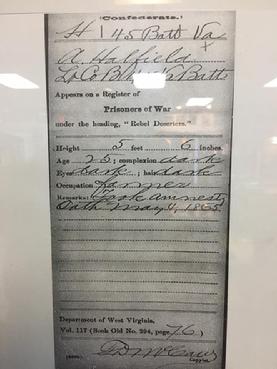 (Confederate.)
H | 45 Batt | Va
A. Halfield
Co Batts
Appears on a Register of
Prisoners of War
under the heading, "Rebel Deserters."
Height 5 feet 6 inches.
Age 25; complexion dark
Eyes dark; hair dark
Occupation Farmer
Remarks: Took Amnesty
Oath May 4, 1865
Department of West Virginia,
Vol. 117 (Book Old No. 394, page 76)
Copyist.